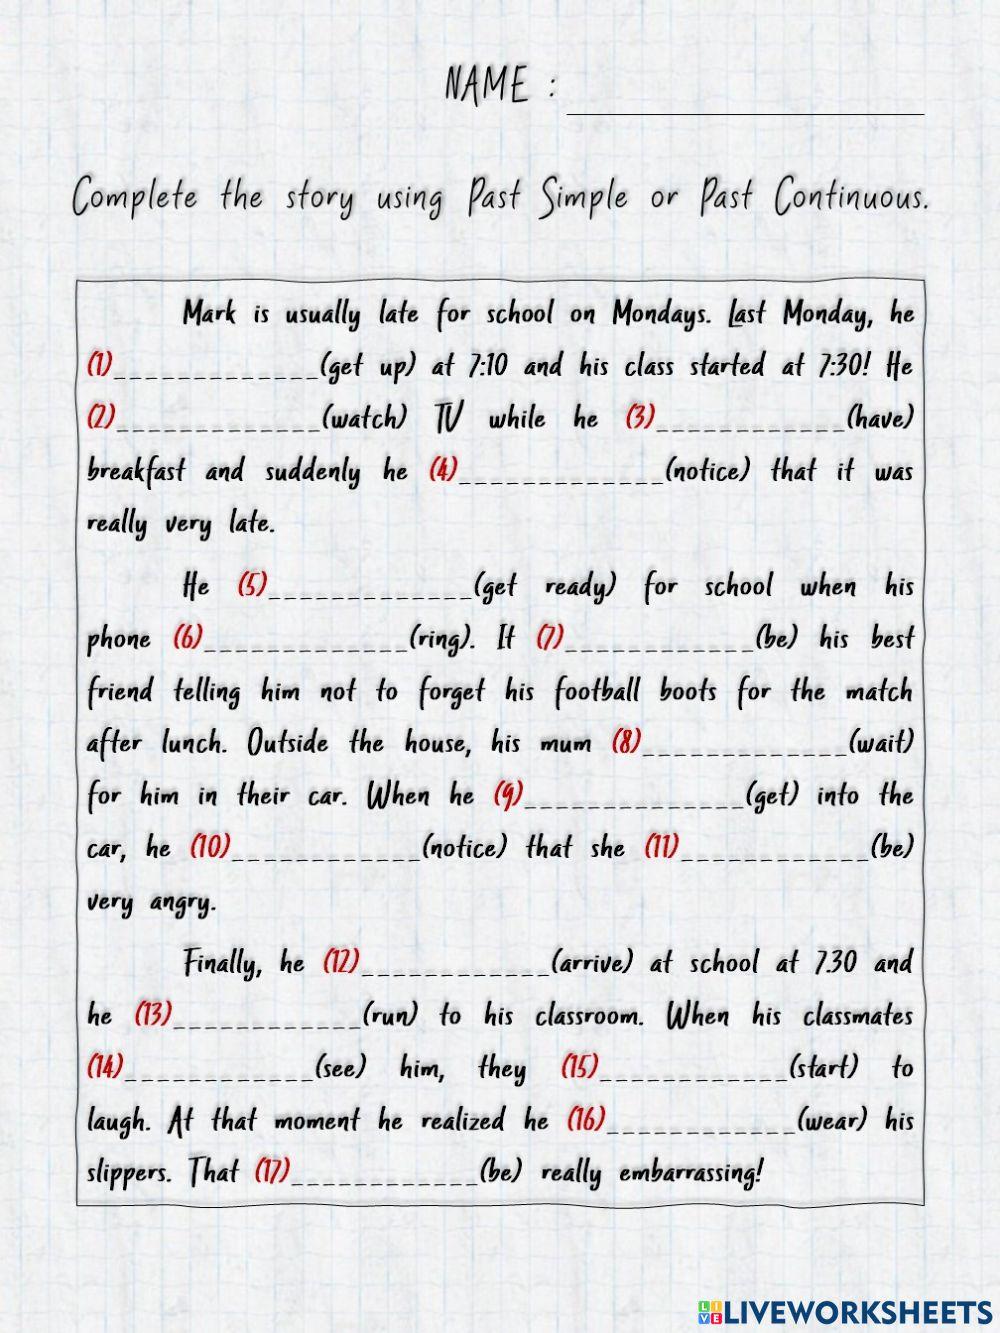 NAME : ____________________
Complete the story using Past Simple or Past Continuous.
Mark is usually late for school on Mondays. Last Monday, he
(1)_____________(get up) at 7:10 and his class started at 7:30! He
(2)_____________(watch) TV while he (3)____________(have)
breakfast and suddenly he (4)_____________(notice) that it was
really very late.
He (5)_____________(get ready) for school when his
phone (6)_____________(ring). It (7)____________(be) his best
friend telling him not to forget his football boots for the match
after lunch. Outside the house, his mum (8)_____________(wait)
for him in their car. When he (9)______________(get) into the
car, he (10)____________(notice) that she (11)____________(be)
very angry.
Finally, he (12)____________(arrive) at school at 7.30 and
he (13)____________(run) to his classroom. When his classmates
(14)____________(see) him, they (15)____________(start) to
laugh. At that moment he realized he (16)____________(wear) his
slippers. That (17)____________(be) really embarrassing!
LIVE LIVEWORKSHEETS